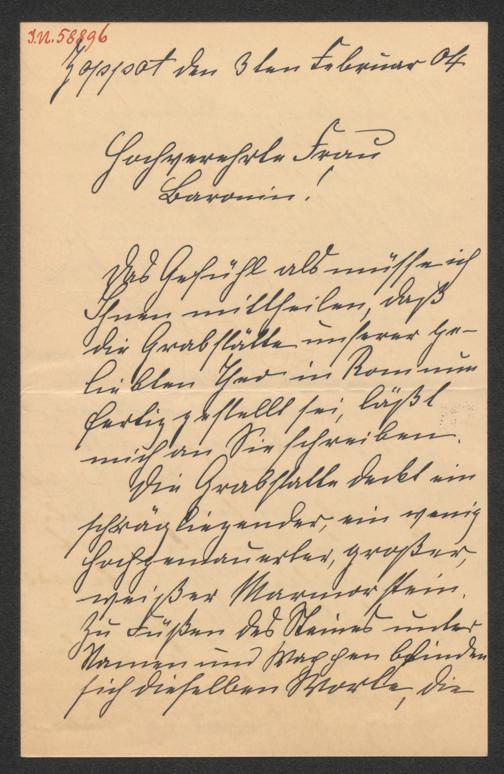 J.N. 58896
Zoppot den 3ten Februar 04
Hochverehrte Frau
Baronin!
Das Gefühl als müsse ich
Ihnen mittheilen, daß
die Grabstätte unserer ge-
liebten Theo in Rom nun
fertig gestellt sei, läßt
mich an Sie schreiben.
Die Grabstätte deckt ein
schrägliegender, ein wenig
hochgemauerter, großer,
weißer Marmorstein.
Zu Füßen des Steines unter
Namen und Wappen befinden
sich dieselben Worte, die